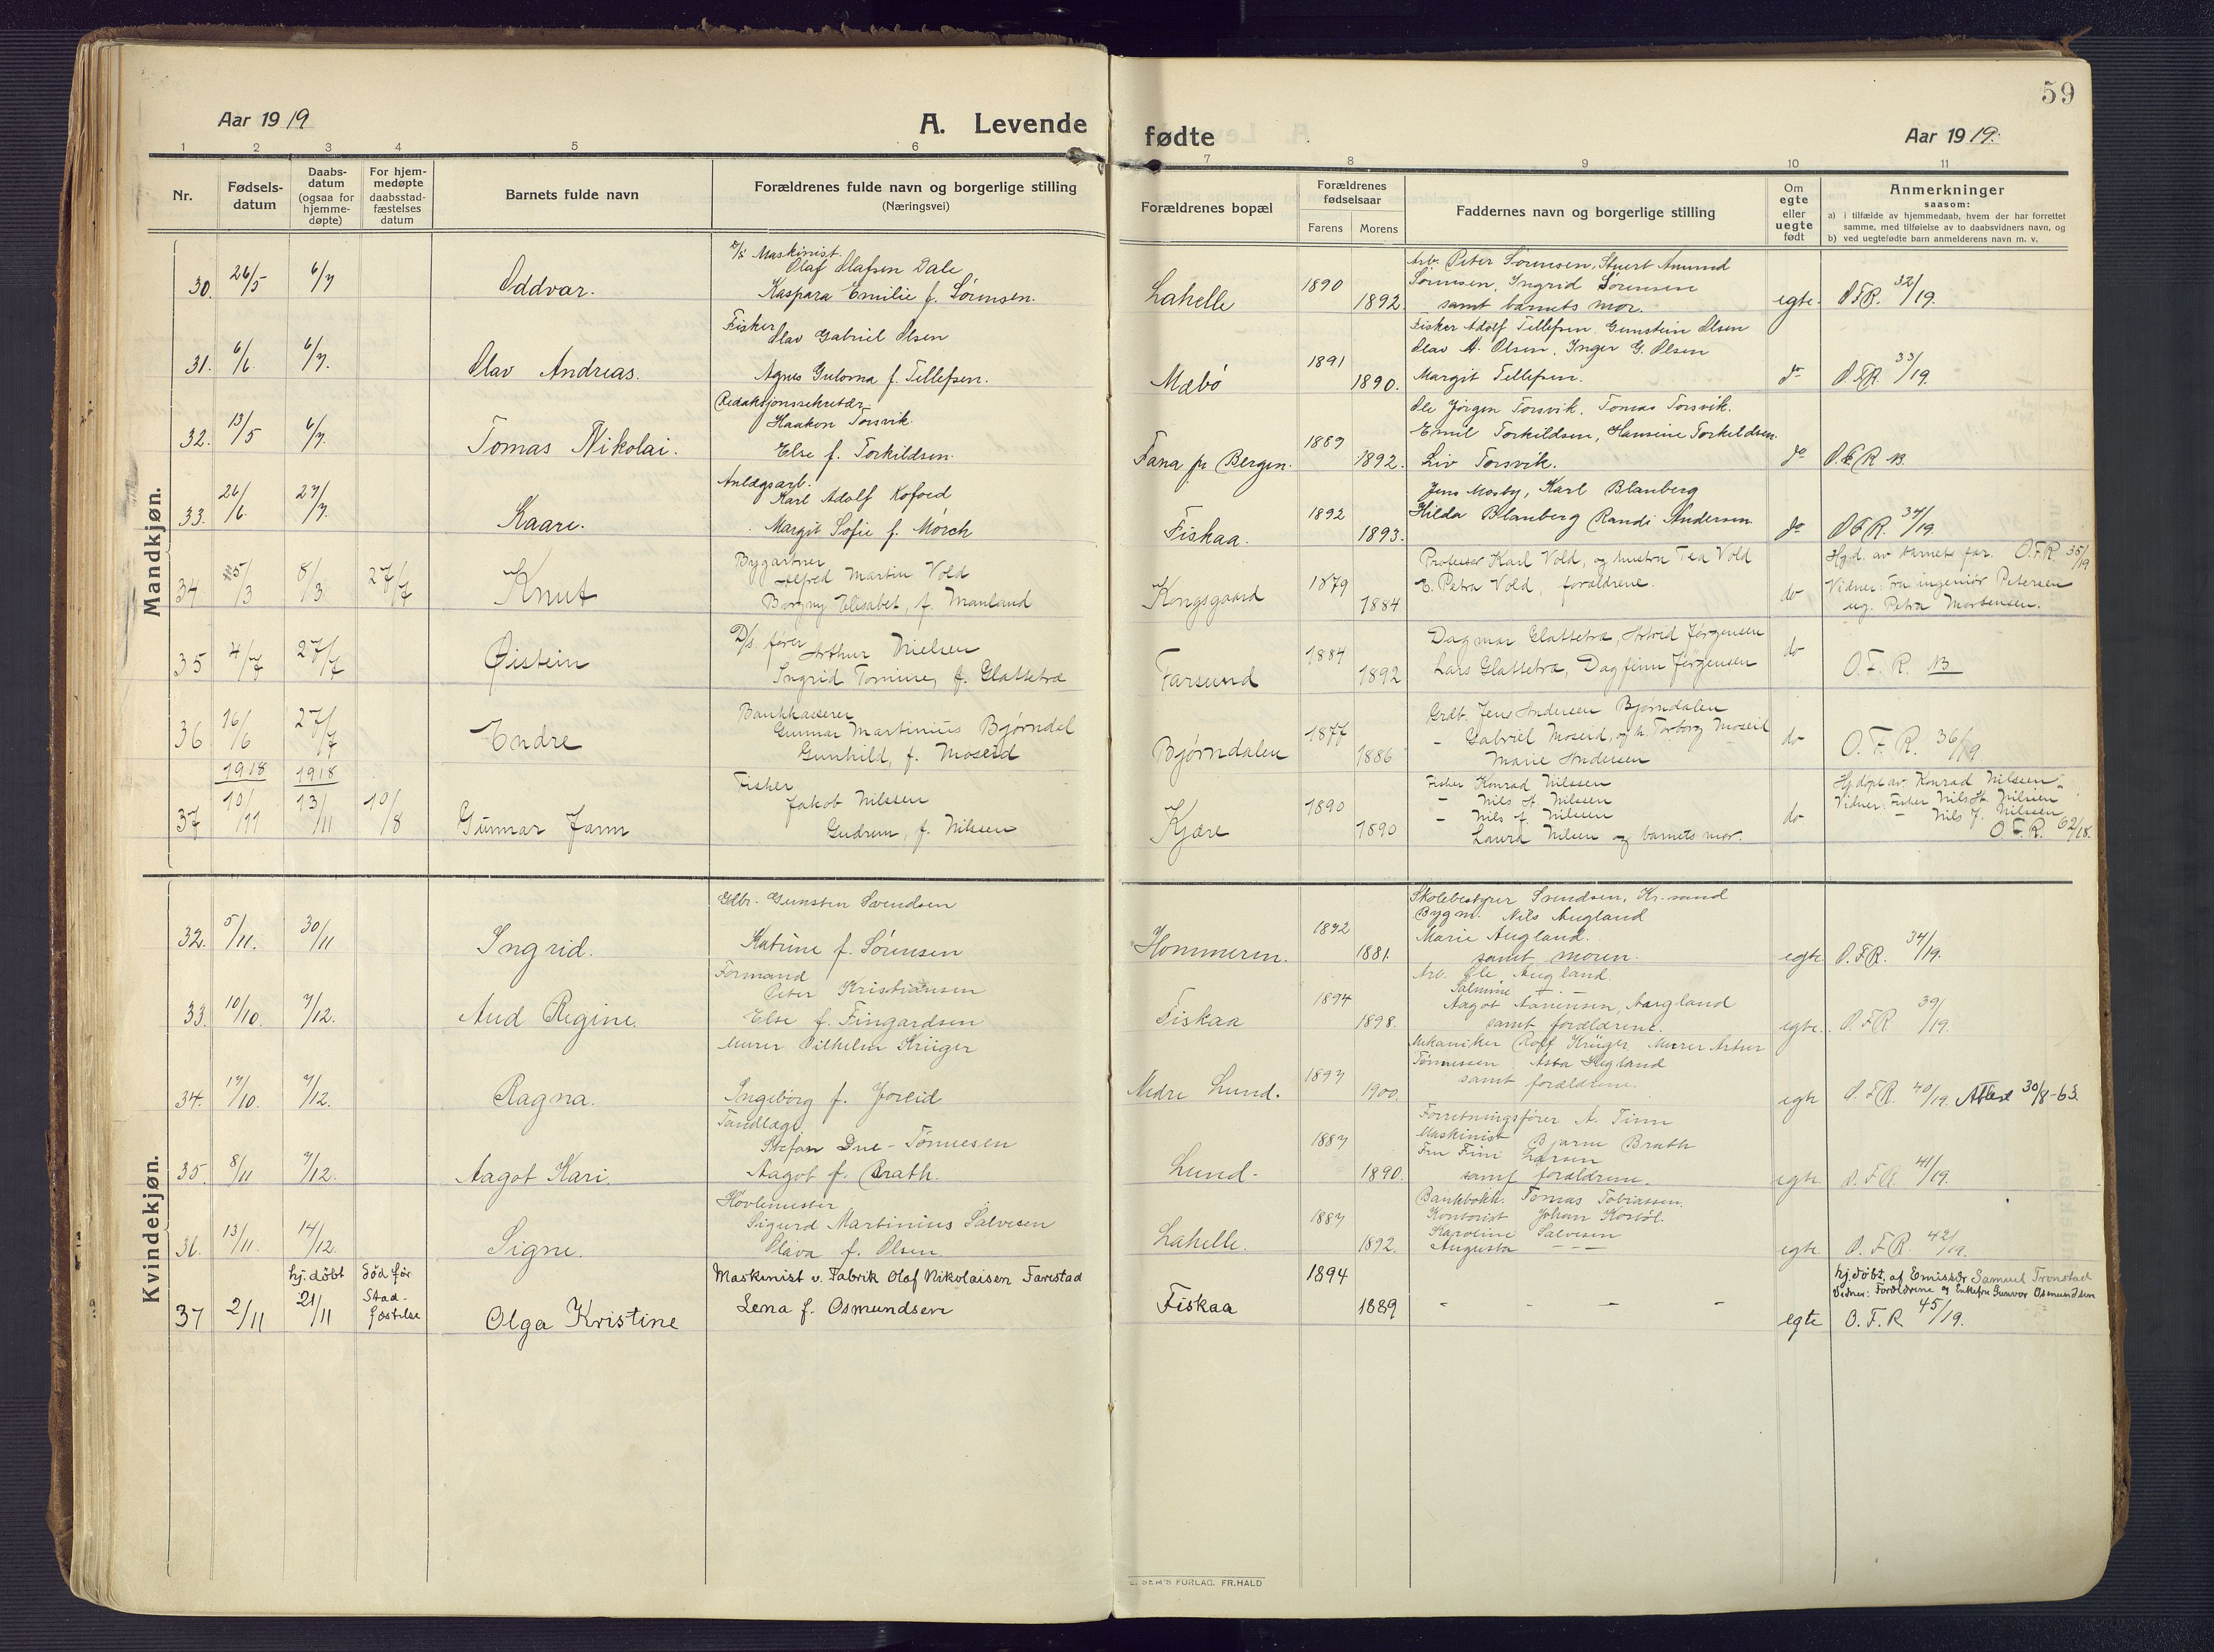 59
Aar 1919
A. Levende
fødte
Aar 1919.
1 2 3 4 5 6 7 8 9 10 11
Nr.
Fødsels-
datum
Daabs-
datum
(ogsaa for
hjemme-
døpte)
For hjem-
medøpte
daabsstad-
fæstelses
datum
Barnets fulde navn
Forældrenes fulde navn og borgerlige stilling
(Næringsvei)
Forældrenes bopæl
Forældrenes
fødselsaar
Farens Morens
Faddernes navn og borgerlige stilling
Om
egte
eller
uegte
født
Anmerkninger
saasom:
a) i tilfælde av hjemmedaab, hvem der har forrettet
samme, med tilføielse av to daabsvidners navn, og
b) ved uegtefødte barn anmelderens navn m. v.
Mandkjøn.
30. 26/5 6/7 Oddvar.
D/s Maskinist.
Olaf Olafsen Dale
Kaspara Emilie f. Sørensen.
Lahelle 1890 1892.
Arb. Peter Sørensen, Stuert Amund
Sørensen, Ingrid Sørensen
samt barnets mor.
egte. O.F.R. 32/19.
31. 6/6. 6/7. Olav Andreas.
Fisker
Olav Gabriel Olsen
Agnes Gulorna f. Tellefsen.
Mæbø 1891 1890.
Fisker Adolf Tellefsen, Gunstein Olsen
Olav A. Olsen, Inger G. Olsen
Margit Tellefsen.
do O.F.R. 33/19.
32. 13/5 6/7. Tomas Nikolai.
Redaksjonssekretær.
Haakon Torsvik.
Else f. Torkildsen.
Fana pr Bergen. 1889 1892.
Ole Jørgen Torsvik, Tomas Torsvik.
Emil Torkildsen, Hansine Torkildsen.
Liv Torsvik.
do O.F.R. NB.
33. 26/6. 27/7. Kaare.
Anlægsarb.
Karl Adolf Kofoed
Margit Sofie f. Mörch
Fiskaa. 1892 1893.
Jens Mosby, Karl Blanberg
Hilda Blanberg Randi Andersen
do O.F.R. 34/19.
34 5/3 8/3 27/7 Knut
Bygartner
Alfred Martin Vold
Borgny Elisabet, f. Manland
Kongsgaard 1879 1884
Professor Karl Vold, og hustru Tea Vold
E. Petra Vold, forældrene.
do
Hj.d. av barnets far. O.F.R. 35/19
Vidner: Fru ingeniør Petersen
og. Petra Mortensen.
35 4/7 27/7 Øistein
D/s. fører
Arthur Nielsen
Ingrid Tomine, f. Glattetre
Farsund 1884 1892
Dagmar Glattetre, Astrid Jørgensen
Lars Glattetre, Dagfinn Jørgensen
do O.F.R. NB
36 16/6 27/7 Endre
Bankkasserer
Gunnar Martinius Bjørndal
Gunhild, f. Moseid
Bjørndalen 1877 1886
Grdb. Jens Andersen Bjørndalen
- Gabriel Moseid, og h. Torborg Moseid
Marie Andersen
do O.F.R. 36/19
1918 1918
37 10/11 13/11 10/8 Gunnar Jarm
Fisker
Jakob Nilssen
Gudrun, f. Nilssen
Kjære 1890 1890
Fisher Konrad Nilssen
- Nils H. Nilssen
- Nils J. Nilssen
Laura Nilsen og barnets mor.
do
Hj.døpt av: Konrad Nilssen
Vidner: Fisker Nils H. Nilssen
- Nils J. Nilssen
O.F.R. 62/18.
Kvindekjøn.
32. 5/11. 30/11 Ingrid.
Gdbr. Gunsten Svendsen
Katrine f. Sörensen
Hommeren. 1892 1881.
Skolebestyrer Svendsen, Kr.sand
Bygm. Nils Augland
Marie Augland.
samt moren.
egte O.F.R. 34/19.
33. 10/10. 7/12. Aud Regine.
Formand
Peter Kristiansen
Else f. Fingardsen
Fiskaa 1894 1898.
Arb. Ole Augland
Salmine - -
Aagot Aanensen, Augland
samt forældrene.
egte. O.F.R 39/19.
34. 17/10. 7/12. Ragna.
Murer Vilhelm Krüger
Ingeborg f. Joreid
Nedre Lund. 1897 1900.
Mekaniker Rolf Krüger, Murer Artur
Tönnessen, Asta Higland
samt forældrene.
egte O.F.R. 40/19. Attest 30/8-63.
35. 8/11 7/12. Aagot Kari.
Tandlæge
Stefan Due-Tönnesen
Aagot f. Brath.
Lund. 1887 1890.
Forretningsfører A. Finn
Maskinist Bjarne Brath
Fru Fini Larsen
samt forældrene.
egte. O.F.R. 41/19.
36. 13/11. 14/12. Signe.
Hövlemester
Sigurd Martinius Salvesen
Olava f. Olsen
Lahelle. 1887 1892.
Bankbokh. Tomas Tobiassen.
Kontorist Johan Kostöl.
Karoline Salvesen
Augusta - - -
egte. O.F.R. 42/19.
37 2/11 hj.döbt 21/11 Död før Stad-fæstelse Olga Kristine
Maskinist v. Fabrik Olaf Nikolaisen Farestad
Lena f. Osmundsen
Fiskaa 1894 1889
- - - -
egte
hj.döbt. af Emissær Samuel Tronstad
Vidner: Forældrene og Enkefru Gunvor Osmundsen
O.F.R 45/19.
E. SEM'S FORLAG. FR.HALD